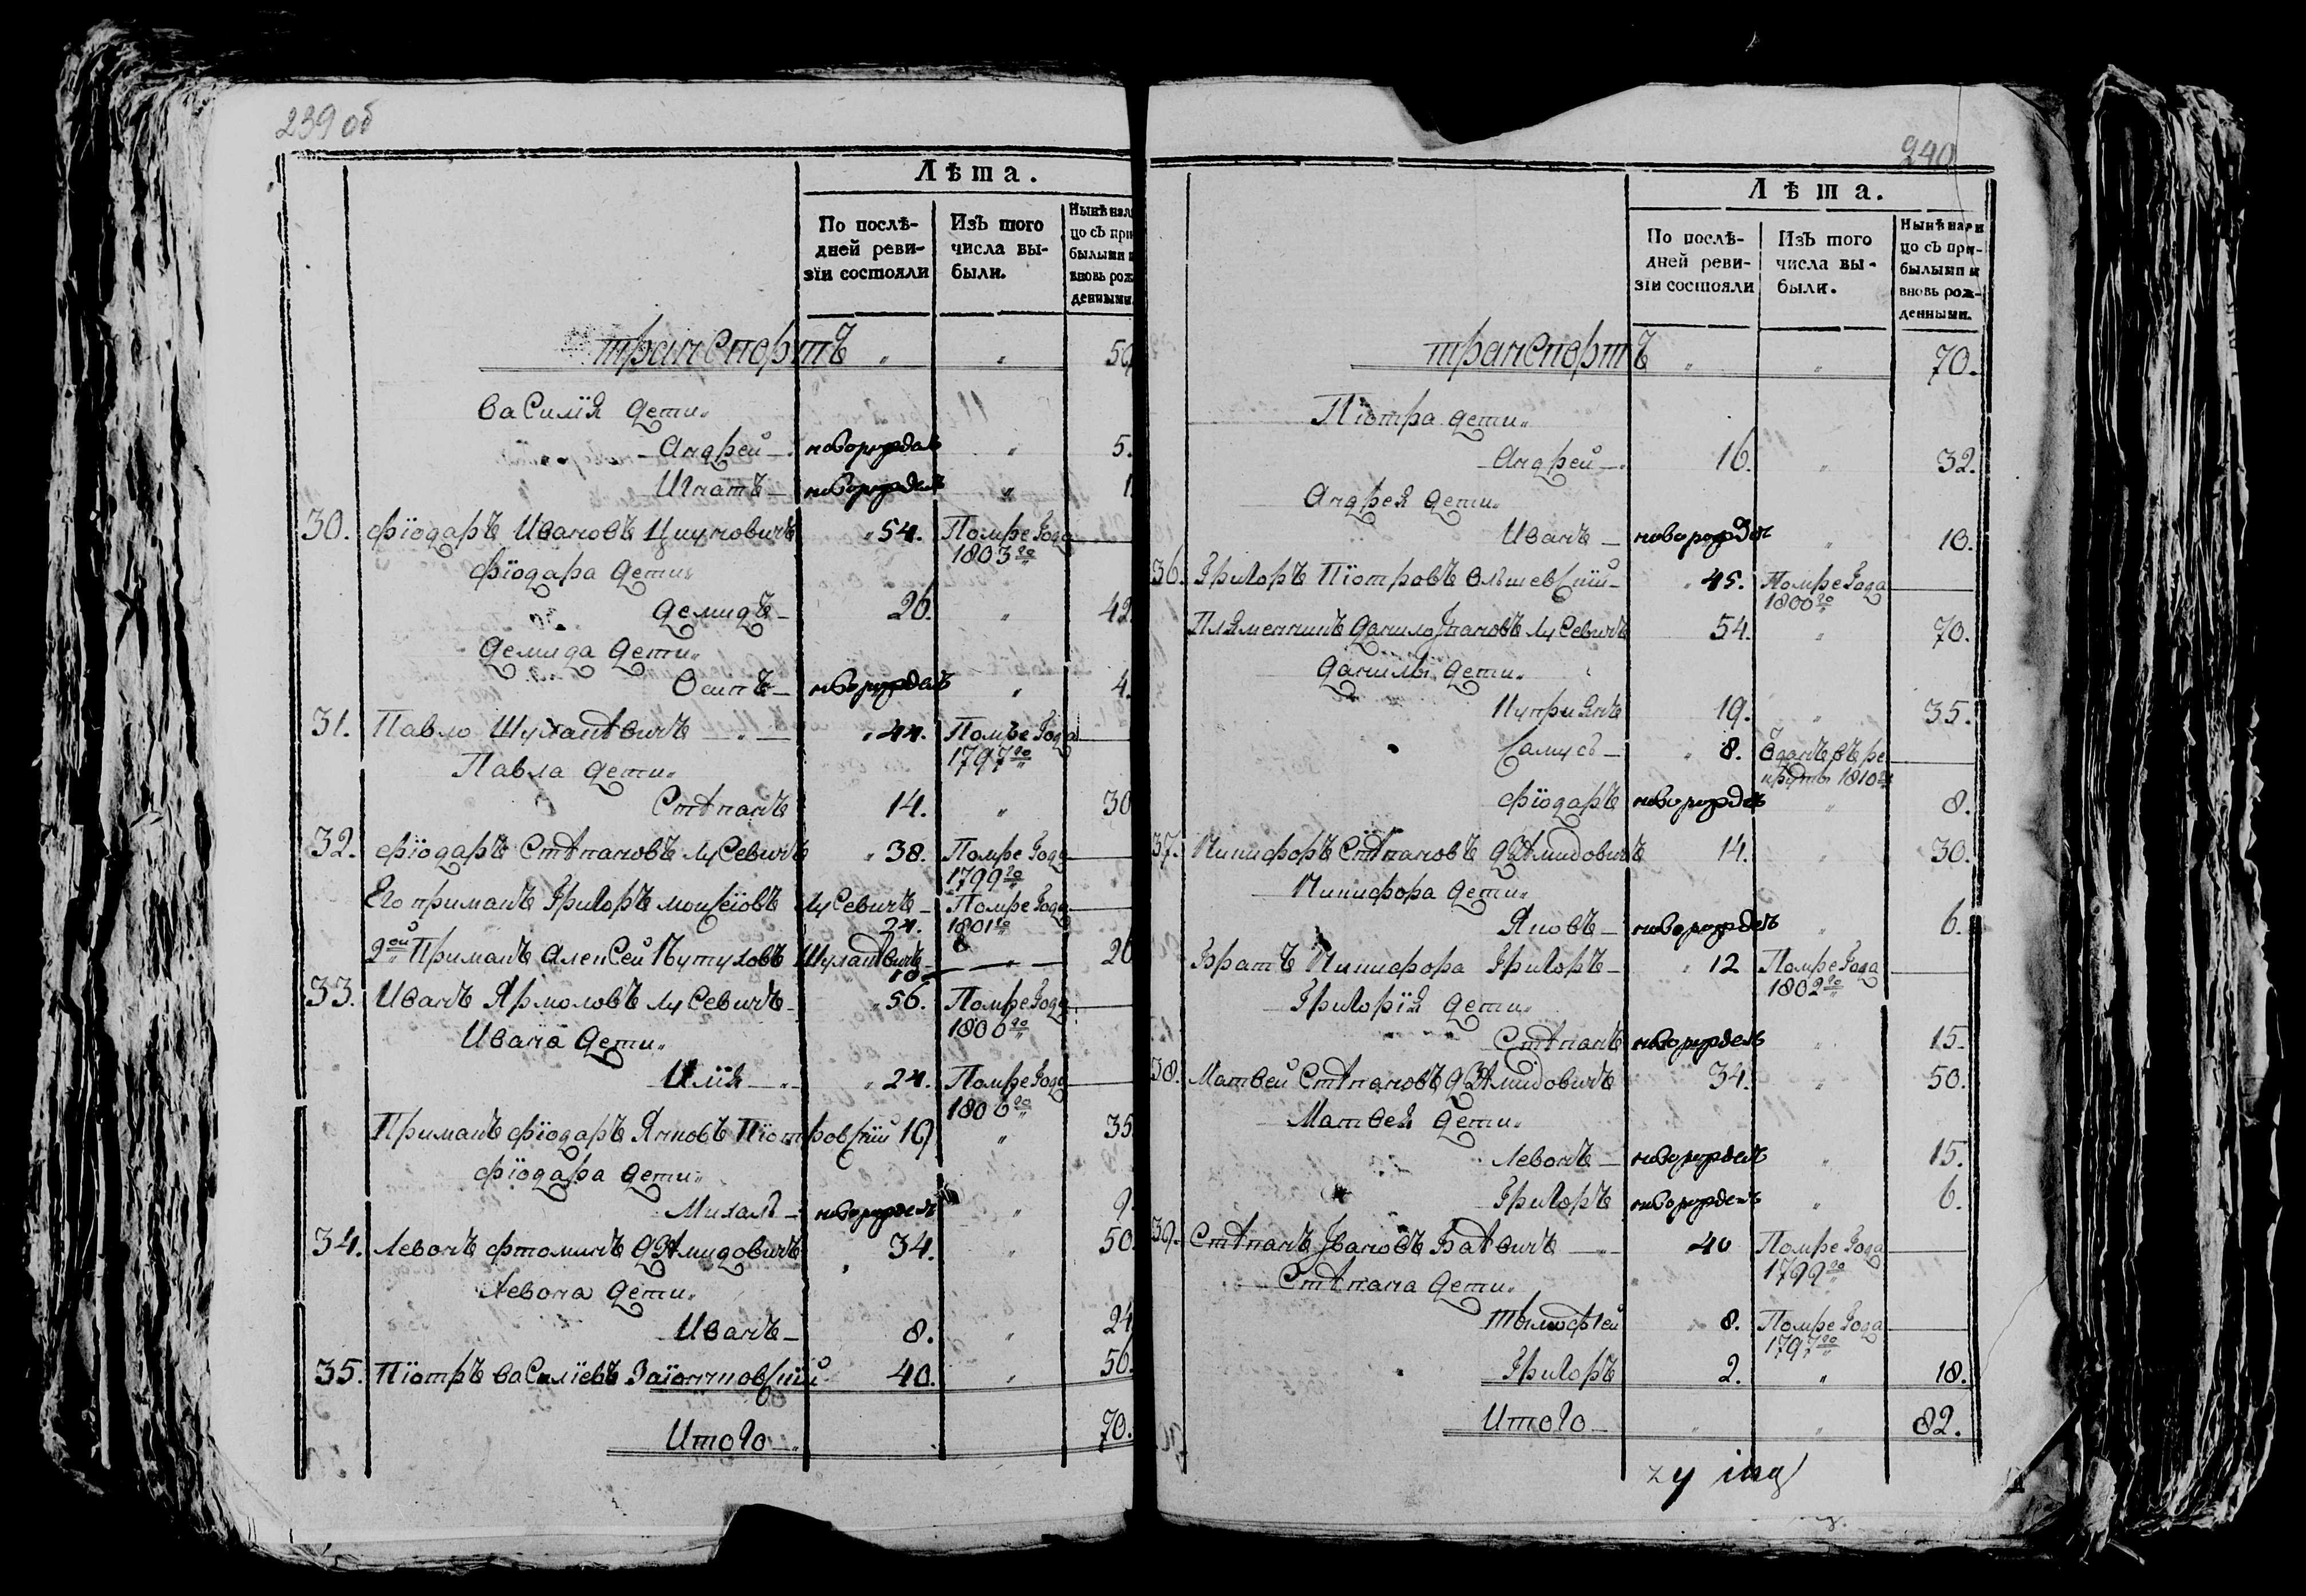 239 об
Лѣта.
По послѣ-
дней реви-
зїи состояли
Изъ того
числа вы-
были.
Нынѣ нали
цо съ при
былыми и
вновь рож
денными.
транспортъ „ „
Василїя дети„
Андрей — новорожденъ „ 5.
Игнатъ — новорожденъ „ 1
30. Фїодаръ Ивановъ „ 54. Помре года
1803го
Фїодара дети„
Демидъ — 26. „ 42.
Демида дети„
Осипъ — новорожденъ „ 4.
31. Павло „ 44. Помре года
1797го
Павла дети„
Стѣпанъ 14. „ 30
32. Фїодаръ Стѣпановъ Лусевичъ „ 38. Помре года
1799го
Его приманъ Григоръ Лусевичъ — Помре года
24. 1801го
2ой Приманъ Алексей „ 26
10
33. Иванъ Ярмоловъ Лусевичъ „ 56. Помре года
1806го
Ивана дети„
Илїя — „ 24. Помре года
1806го
Приманъ Фїодаръ Яковъ Пїотровскїй 19 „ 35
Фїодара дети„
Михалъ — новорожденъ „ 9.
34. Левонъ Фтоминъ Дзѣмидовичъ 34. „ 50.
Левона дети„
Иванъ — 8. „ 24
35. Пїотръ Василїевъ 40. „ 56.
Итого — 70.
240
Лѣта.
По послѣ-
дней реви-
зїи состояли
Изъ того
числа вы-
были.
Нынѣ нали
цо съ при-
былыми и
вновь рож-
денными.
транспортъ „ „ 70.
Пїотра дети„
Андрей — 16. „ 32.
Андрея дети„
Иванъ — новорожденъ „ 10.
36. Григоръ Пїотровъ „ 45. Помре года
1800го
Плямянникъ Данило Лусевичъ 54. „ 70.
Данилы дети„
Купрїянъ 19. „ 35.
Самусь — „ 8. Оданъ въ ре
круты 1810го
Фїодаръ новорожденъ „ 8.
37. Никифоръ Стѣпановъ Дзѣмидовичъ 14. „ 30.
Никифора дети„
Яковъ — новорожденъ „ 6.
Братъ Никифора Григоръ — „ 12 Помре года
1802го
Григорїя дети„
Стѣпанъ новорожденъ „ 15.
38. Матвей Стѣпановъ Дзѣмидовичъ 34. „ 50.
Матвея дети„
Левонъ — новорожденъ „ 15.
Григоръ новорожденъ „ 6.
39. Стѣпанъ Ивановъ — 40 Помре года
1799го
Стѣпана дети„
Тымофѣй „ 8. Помре года
1797го
Григоръ 2. „ 18.
Итого — „ „ 82.